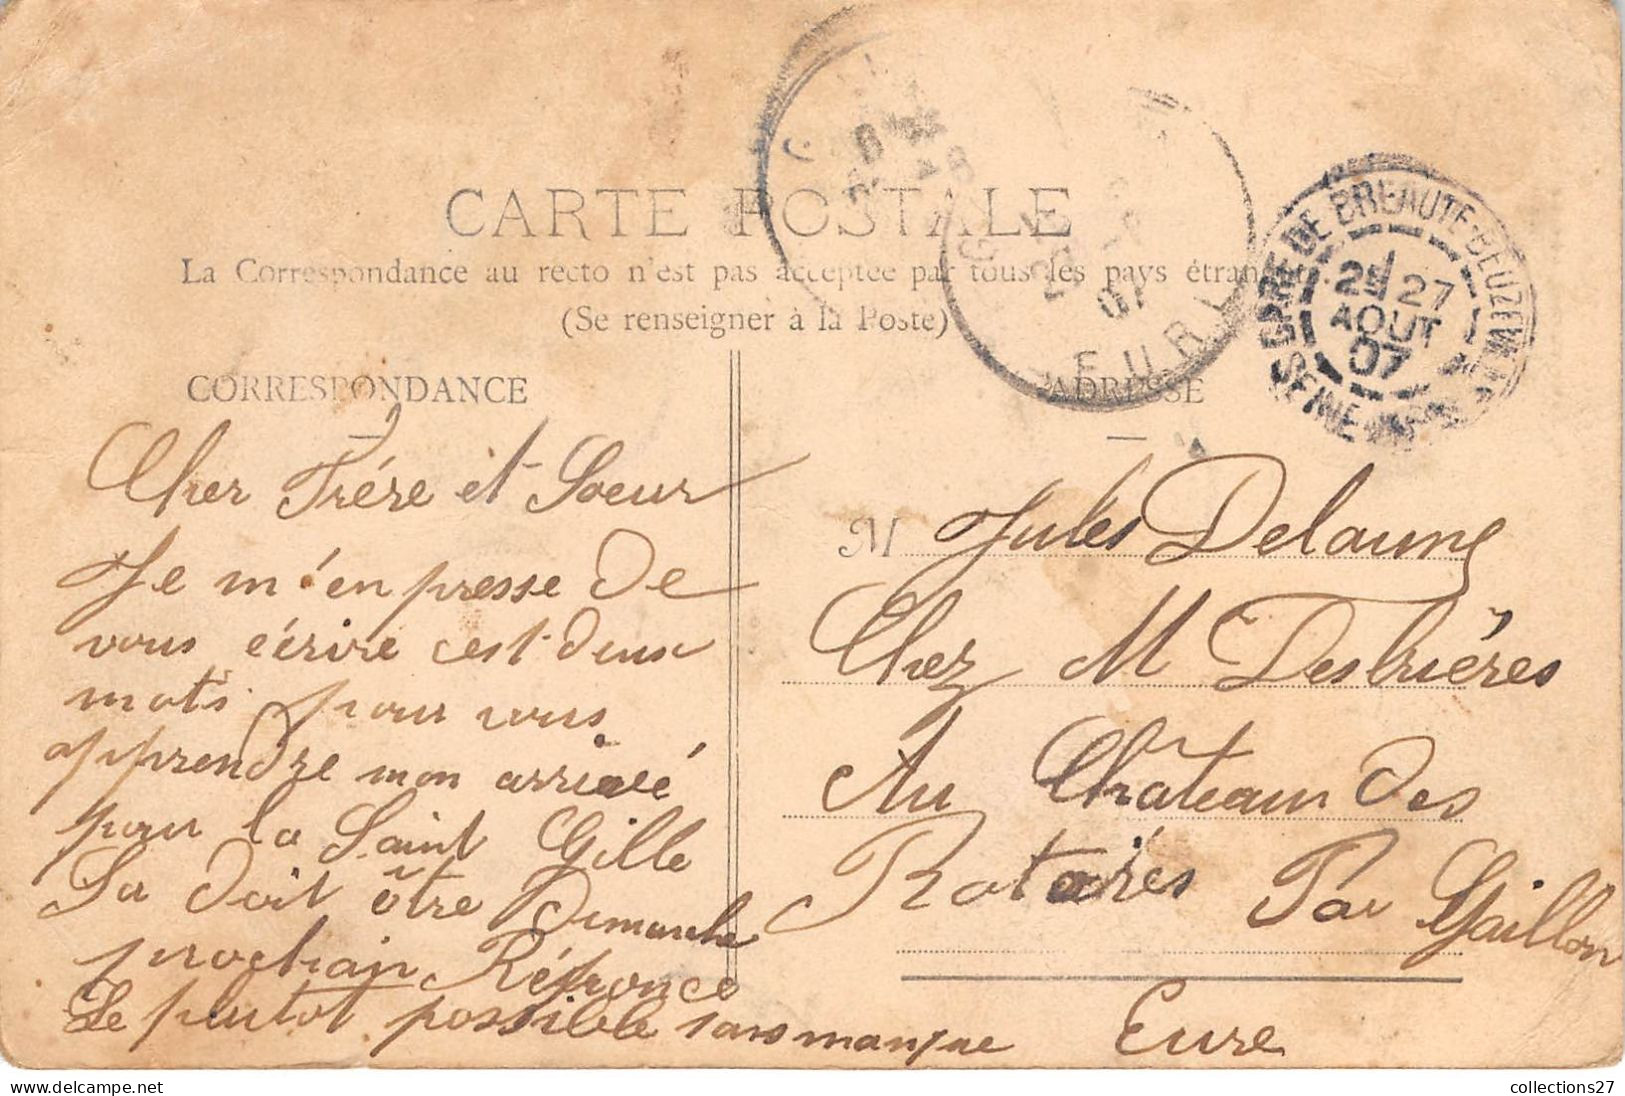 CARTE POSTALE
La Correspondance au recto n'est pas acceptée par tous les pays étran
(Se renseigner à la Poste)
CORRESPONDANCE
ADRESSE
GARE DE BREAUTE-BEUZEVILLE
2E 27
AOUT
07
SEINE
EURE
07
Cher Frére et Soeur
Je m'en presse de
vous écrire cest deux
mots pour vous
apprendre mon arrivé
pour la Saint Gille
Sa doit ôtre Dimanche
prochain Réponce
Le plutot possible sans manque
M Jules Delaune
Chez M Desbriéres
Au Château des
Rotoirés Par Gaillon
Eure
collections27